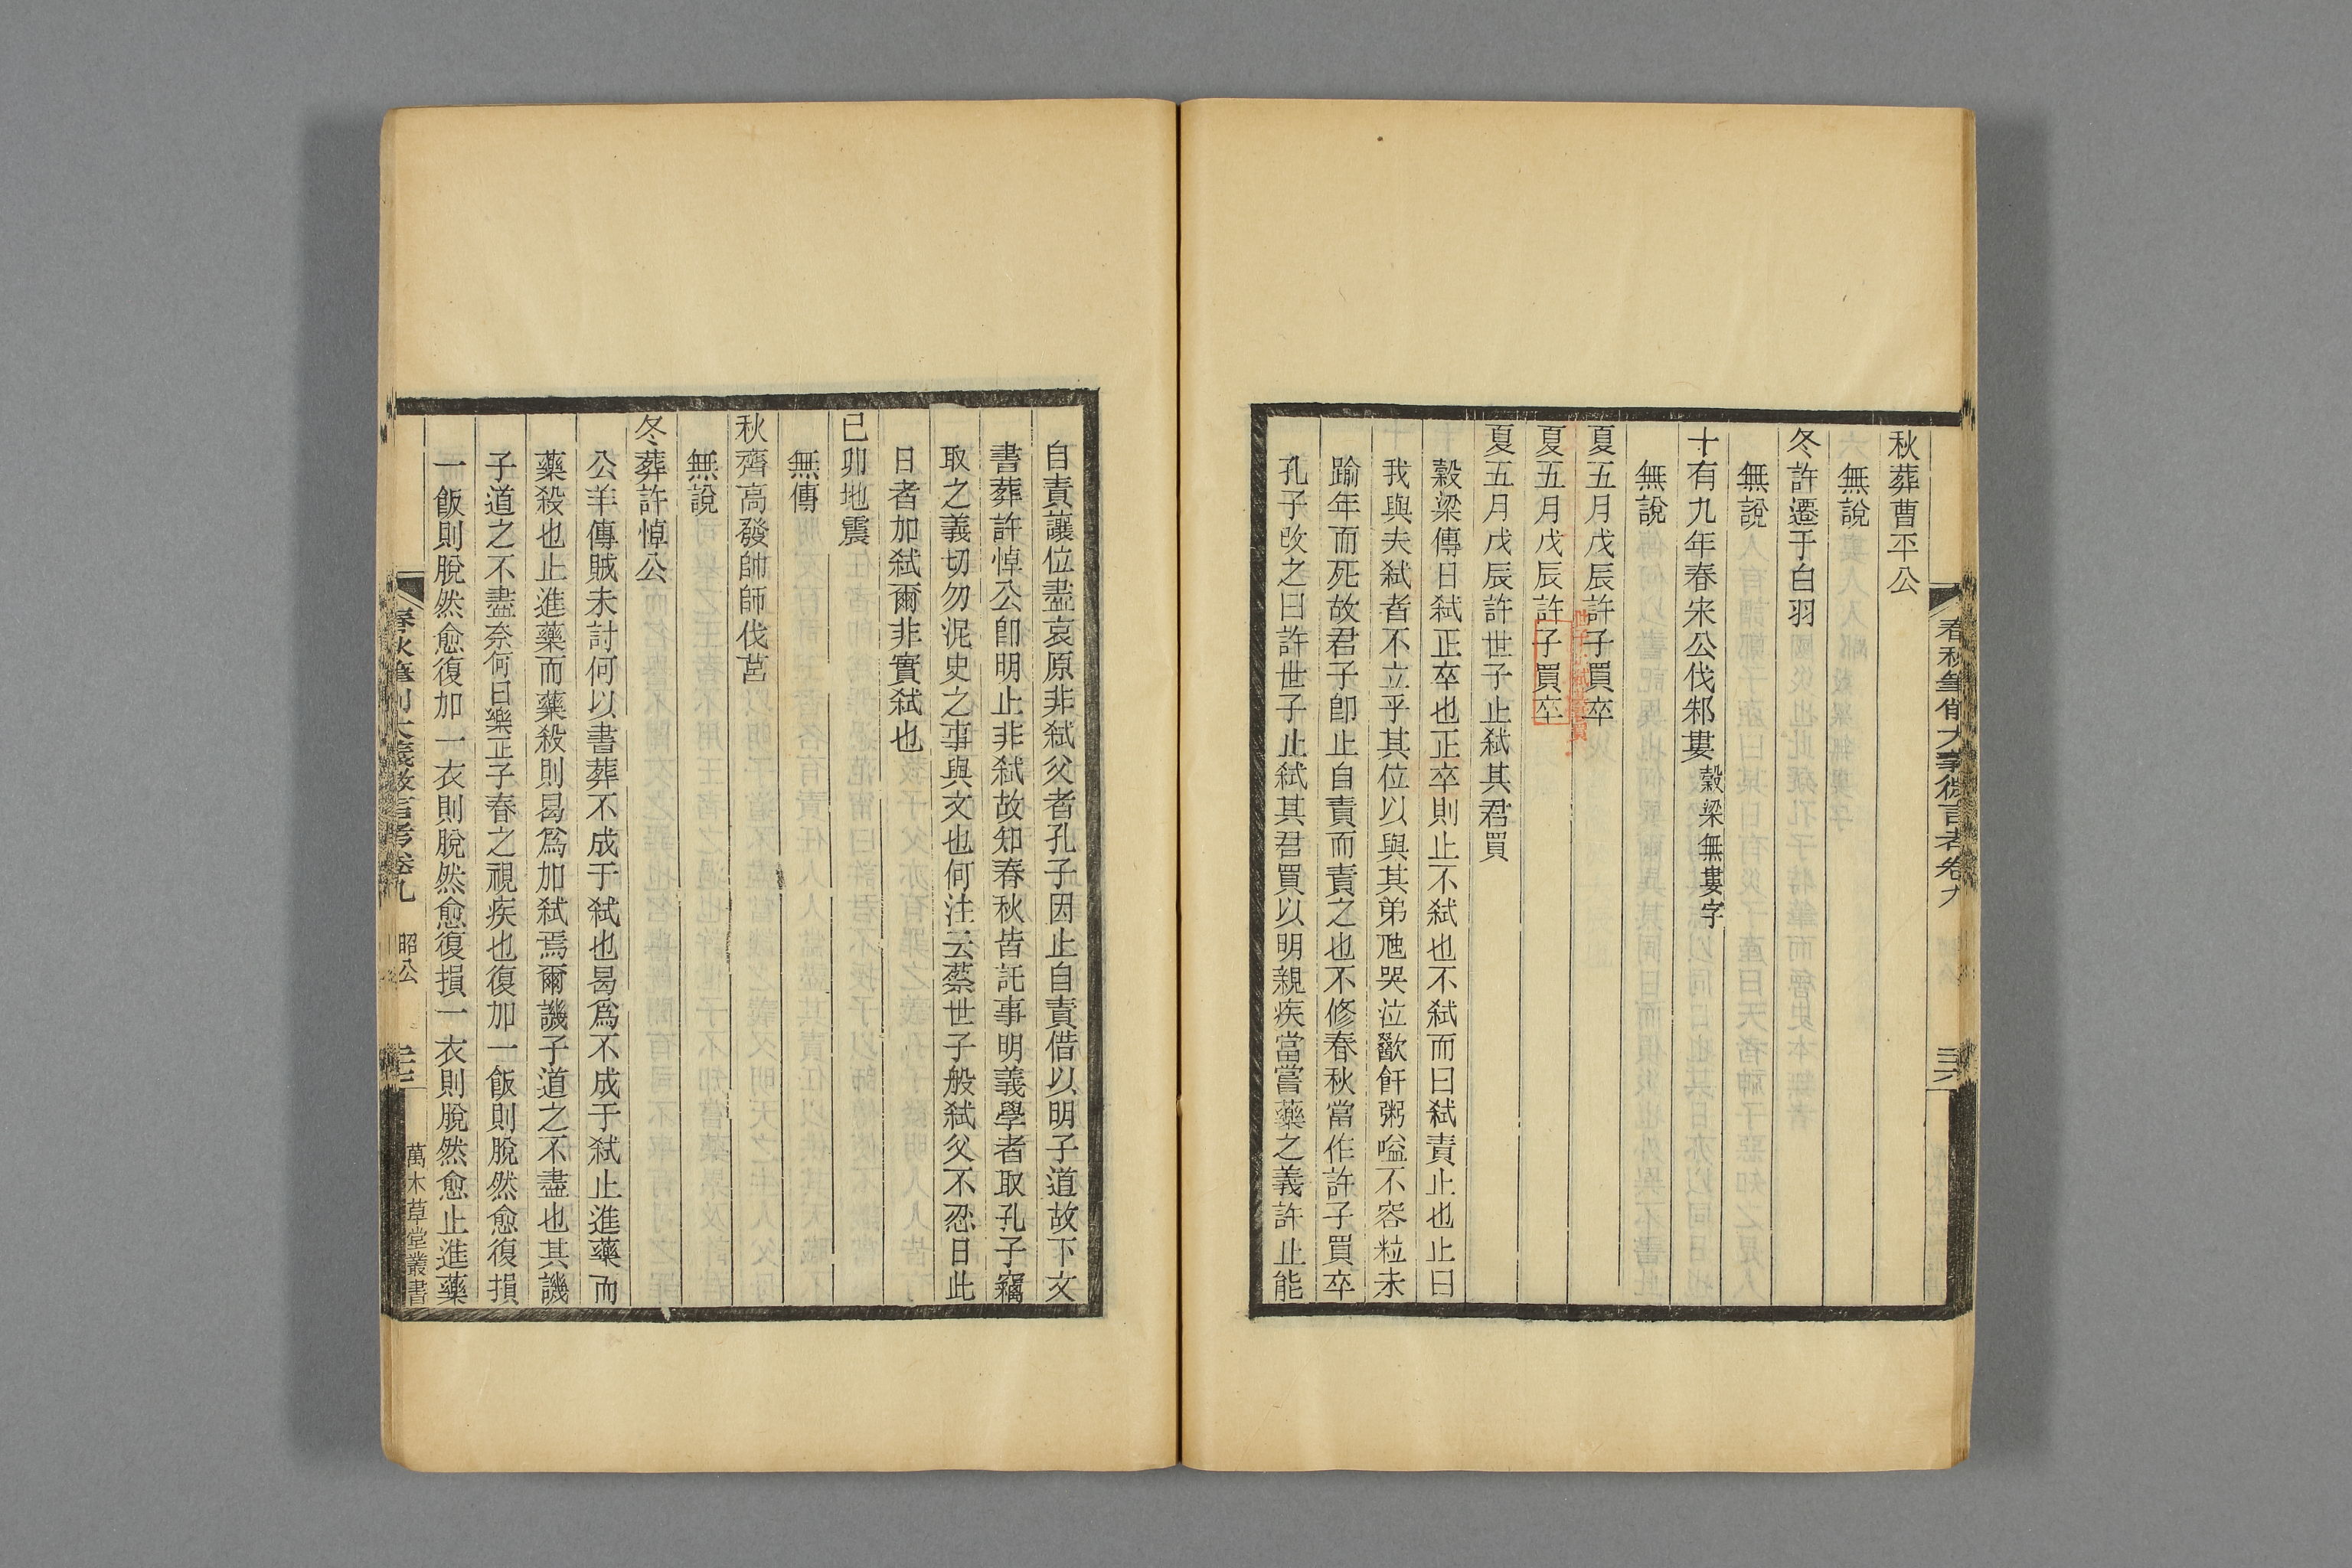 秋葬曹平公
無說
冬許遷于白羽
無說
十有九年春宋公伐邾婁穀梁無婁字
無說
夏五月戊辰許子買卒
夏五月戊辰許子買卒
夏五月戊辰許世子止弑其君買
穀梁傳日弑正卒也正卒則止不弑也不弑而曰弑責止也止曰
我與夫弑者不立乎其位以與其弟虺哭泣歠飦粥嗌不容粒未
踰年而死故君子卽止自責而責之也不修春秋當作許子買卒
孔子改之曰許世子止弑其君買以明親疾當嘗藥之義許止能
自責讓位盡哀原非弑父者孔子因止自責借以明子道故下文
書葬許悼公卽明止非弑故知春秋皆託事明義學者取孔子竊
取之義切勿泥史之事與文也何注云蔡世子般弑父不忍日此
日者加弑爾非實弑也
己卯地震
無傳
秋齊高發帥師伐莒
無說
冬葬許悼公
公羊傳賊未討何以書葬不成于弑也曷爲不成于弑止進藥而
藥殺也止進藥而藥殺則曷爲加弑焉爾譏子道之不盡也其譏
子道之不盡奈何曰樂正子春之視疾也復加一飯則脫然愈復損
一飯則脫然愈復加一衣則脫然愈復損一衣則脫然愈止進藥
春秋筆削大義微言考卷九 昭公
萬木草堂叢書